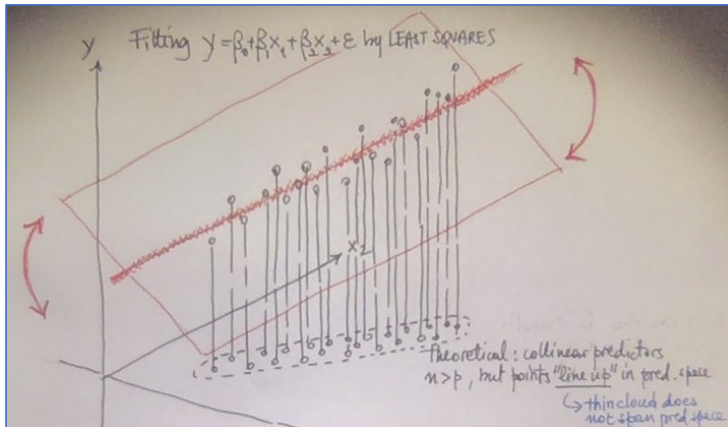 Y
Fitting Y=β₀+β₁X₁+β₂X₂+ε by LEAST SQUARES
X₂
Theoretical: collinear predictors
n>p, but points "line up" in pred. space
↳ thin cloud does
not span pred space